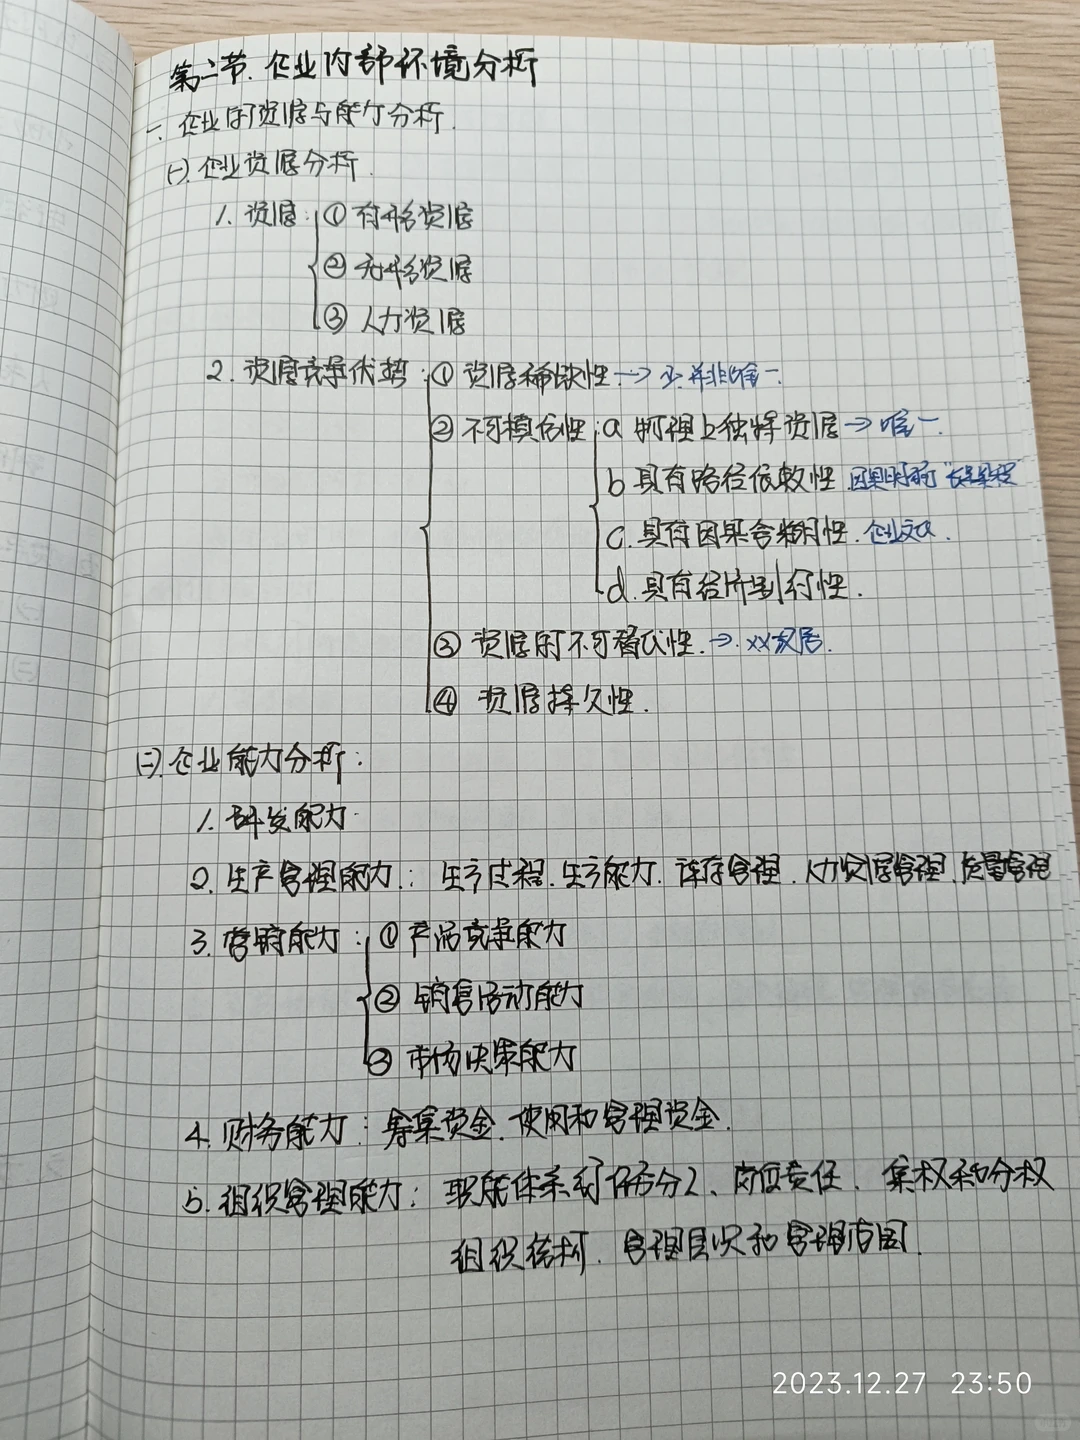 第二节. 企业内部环境分析
一. 企业的资源与能力分析.
(一). 企业资源分析.
1. 资源: ① 有形资源
② 无形资源
③ 人力资源
2. 资源竞争优势: ① 资源稀缺性 → 少.并非唯一.
② 不可模仿性: a 物理上独特资源 → 唯一.
b 具有路径依赖性. 因果明确
c. 具有因果含糊性. 企业文化.
d. 具有经济制约性.
③ 资源的不可替代性. → xx故居.
④ 资源持久性.
(二). 企业能力分析:
1. 研发能力.
2. 生产管理能力: 生产过程. 生产能力. 库存管理. 人力资源管理. 质量管理
3. 营销能力: ① 产品竞争能力
② 销售活动能力
③ 市场决策能力
4. 财务能力: 筹集资金. 使用和管理资金.
5. 组织管理能力: 职能体系的任务分工、岗位责任. 集权和分权
组织结构. 管理层次和管理范围.
2023.12.27 23:50